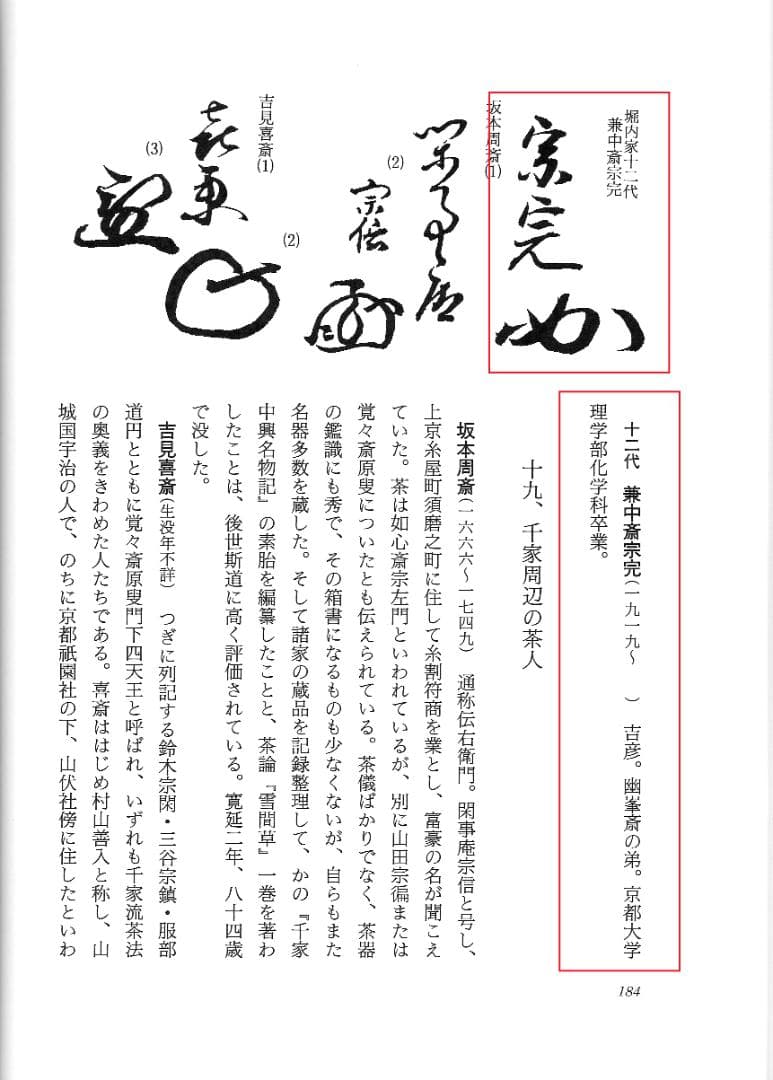 堀内家十二代
兼中斎宗完
宗完
坂本周斎(1)
閑事庵
(2)
宗信
吉見喜斎(1)
喜斎
(2)
(3)
十二代 兼中斎宗完(一九一九〜　　) 吉彦。幽峯斎の弟。京都大学
理学部化学科卒業。
十九、千家周辺の茶人
坂本周斎(一六六六〜一七四九) 通称伝右衛門。閑事庵宗信と号し、
上京糸屋町須磨之町に住して糸割符商を業とし、富豪の名が聞こえ
ていた。茶は如心斎宗左門といわれているが、別に山田宗徧または
覚々斎原叟についたとも伝えられている。茶儀ばかりでなく、茶器
の鑑識にも秀で、その箱書になるものも少なくないが、自らもまた
名器多数を蔵した。そして諸家の蔵品を記録整理して、かの『千家
中興名物記』の素胎を編纂したことと、茶論『雪間草』一巻を著わ
したことは、後世斯道に高く評価されている。寛延二年、八十四歳
で没した。
吉見喜斎(生没年不詳) つぎに列記する鈴木宗閑・三谷宗鎮・服部
道円とともに覚々斎原叟門下四天王と呼ばれ、いずれも千家流茶法
の奥義をきわめた人たちである。喜斎ははじめ村山善入と称し、山
城国宇治の人で、のちに京都祇園社の下、山伏社傍に住したといわ
184